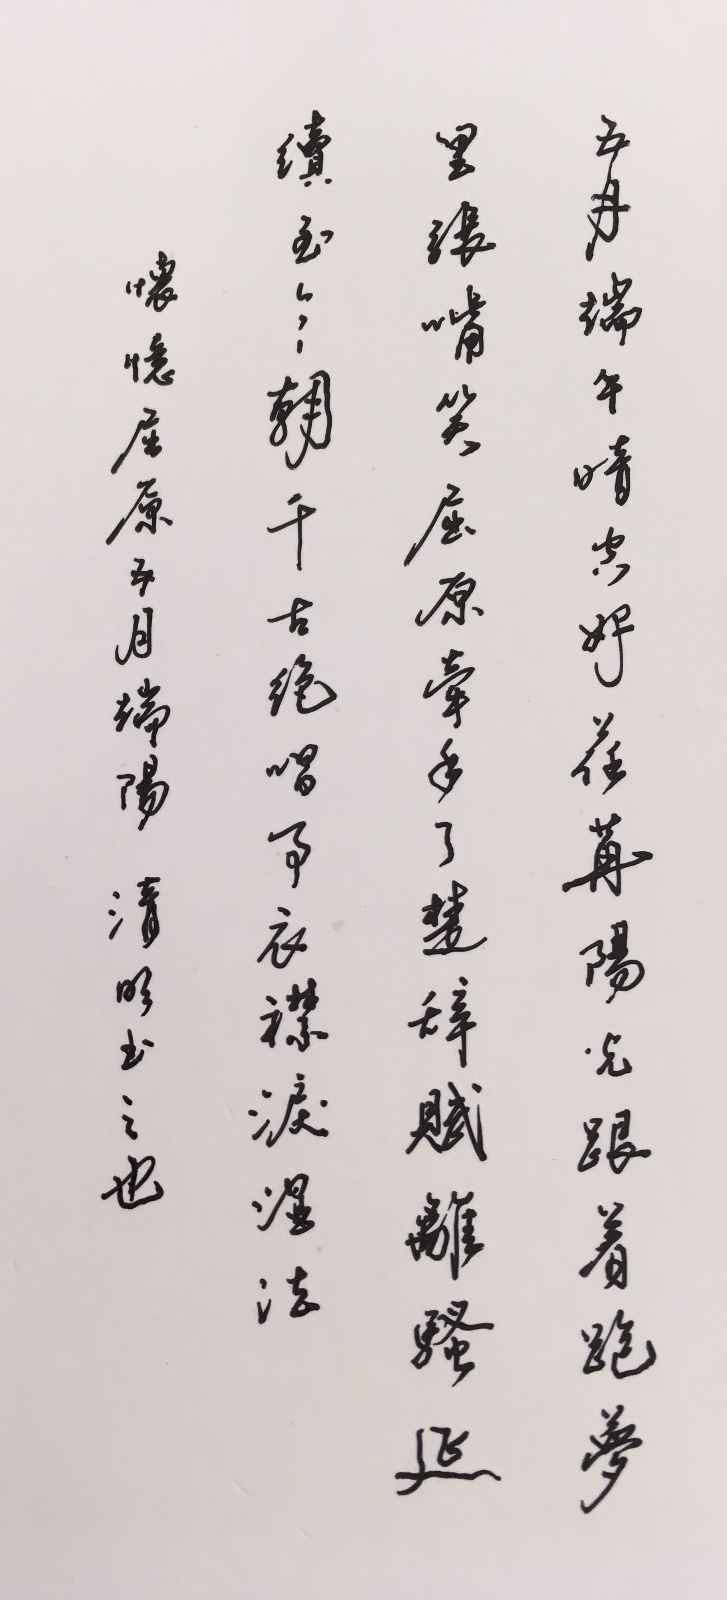 五月端午晴空好荏苒陽光跟着跑夢
里張嘴笑屈原牽手了楚辭賦離騷延
續至今朝千古絕唱事衣襟淚濕
懷憶屈原五月端陽 清明书之也